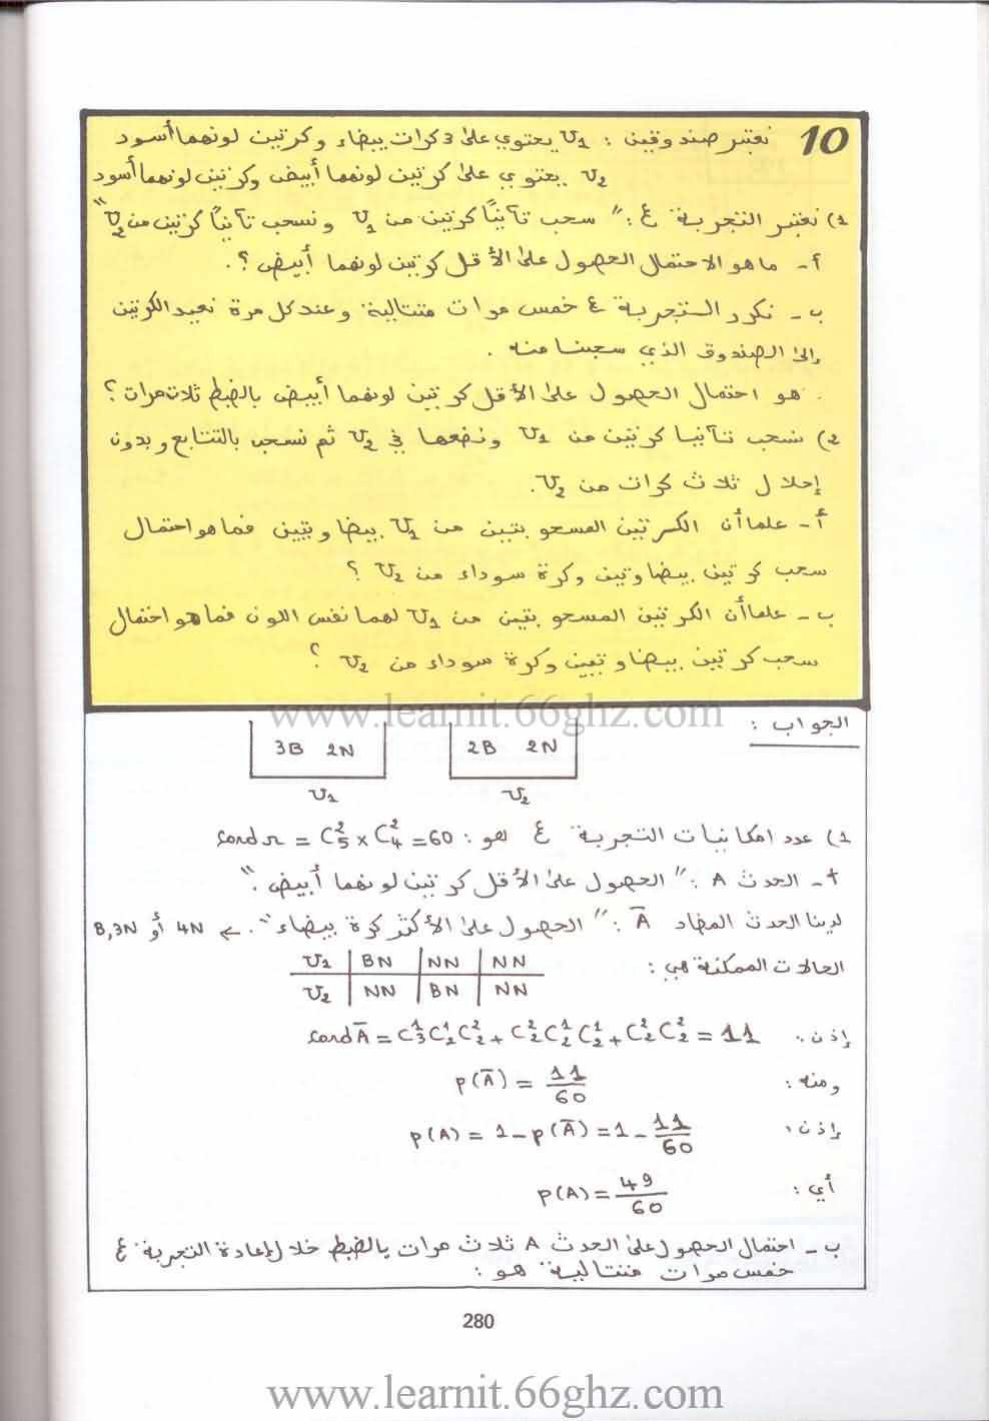 10 نعتبر صندوقين : U₁ يحتوي على 3 كرات بيضاء وكرتين لونهما أسود
U₂ يحتوي على كرتين لونهما أبيض وكرتين لونهما أسود
1) نعتبر التجربة ع : " سحب تآنيًا كرتين من U₁ ونسحب تآنيًا كرتين من U₂ "
أ - ما هو الاحتمال الحصول على الأقل كرتين لونهما أبيض ؟ .
ب - نكرر التجربة ع خمس مرات متتالية وعند كل مرة نعيد الكرتين
إلى الصندوق الذي سحبنا منه .
هو احتمال الحصول على الأقل كرتين لونهما أبيض بالضبط ثلاث مرات ؟
2) نسحب تآنيا كرتين من U₁ ونضعها في U₂ ثم نسحب بالتتابع وبدون
إحلال ثلاث كرات من U₂ .
أ - علما أن الكرتين المسحوبتين من U₁ بيضاوتين فما هو احتمال
سحب كرتين بيضاوتين وكرة سوداء من U₂ ؟
ب - علما أن الكرتين المسحوبتين من U₁ لهما نفس اللون فما هو احتمال
سحب كرتين بيضاوتين وكرة سوداء من U₂ ؟
www.learnit.66ghz.com
الجواب :
3B 2N 2B 2N
U₁ U₂
1) عدد امكانيات التجربة ع هو : card Ω = C₅² × C₄² = 60
أ - الحدث A : " الحصول على الأقل كرتين لونهما أبيض . "
لدينا الحدث المضاد Ā : " الحصول على الأكثر كرة بيضاء " . ⇐ 4N أو B,3N
الحالات الممكنة هي :
U₁ | BN | NN | NN
U₂ | NN | BN | NN
إذن : card Ā = C₃¹C₂¹C₂² + C₂²C₂¹C₂¹ + C₂²C₂² = 11
ومنه : p(Ā) = 11/60
إذن : p(A) = 1 - p(Ā) = 1 - 11/60
أي : p(A) = 49/60
ب - احتمال الحصول على الحدث A ثلاث مرات بالضبط خلال إعادة التجربة ع
خمس مرات متتالية هو :
280
www.learnit.66ghz.com